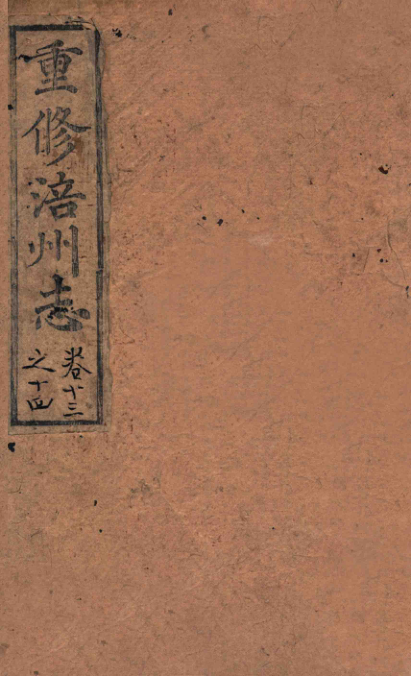 重修涪州志
卷十三
之十四